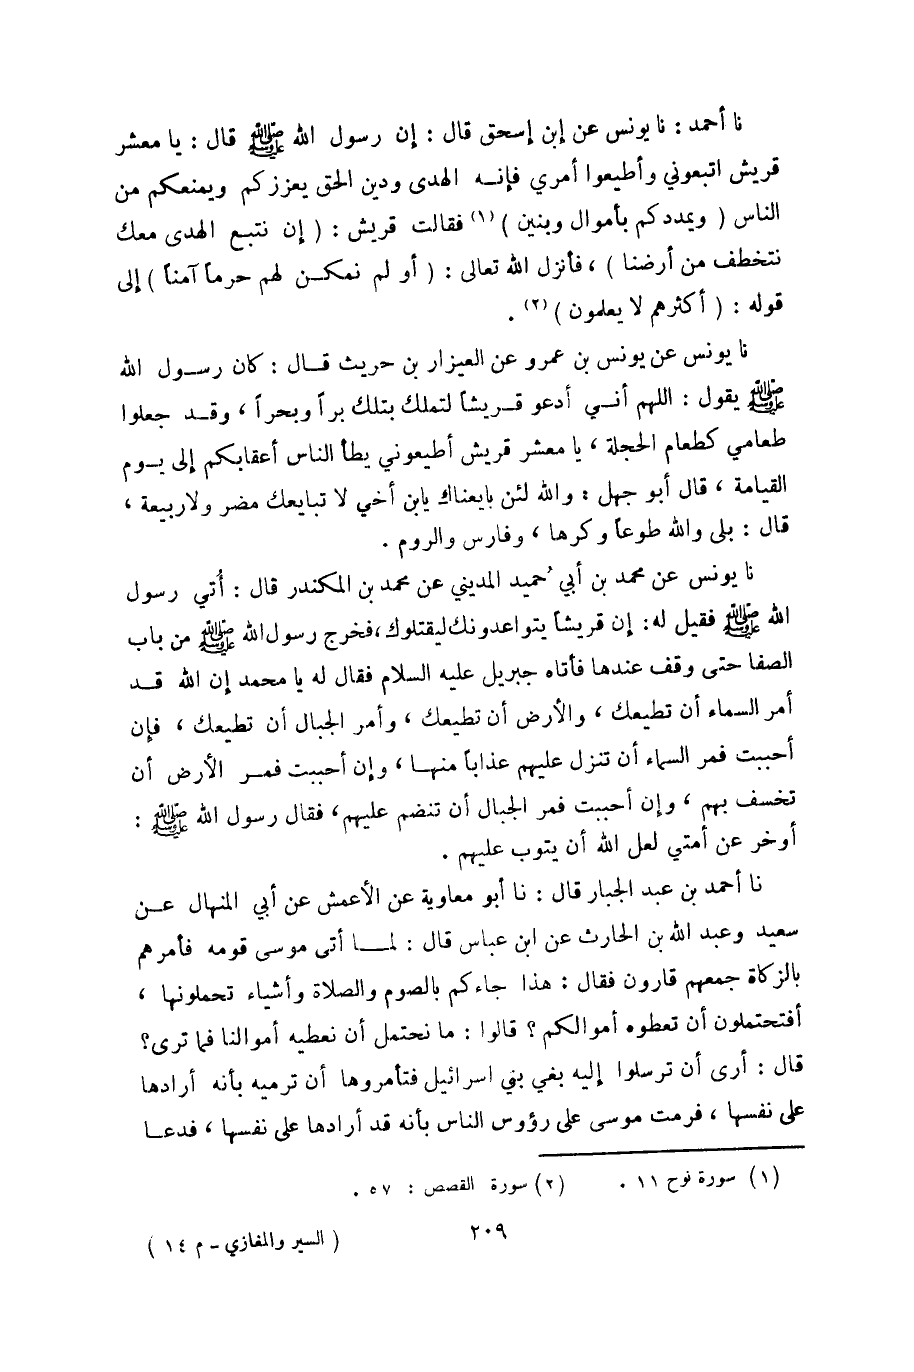 نا أحمد : نا يونس عن إبن إسحق قال : إن رسول الله ﷺ قال : يا معشر
قريش اتبعوني وأطيعوا أمري فإنــه الهدى ودين الحق يعززكم ويمنعكم من
الناس ( ويمددكم بأموال وبنين ) (١) فقالت قريش : ( إن نتبع الهدى معك
نتخطف من أرضنا ) ، فأنزل الله تعالى : ( أو لم نمكــن لهم حرماً آمناً ) إلى
قوله : ( أكثرهم لا يعلمون ) (٢) .
نا يونس عن يونس بن عمرو عن العيزار بن حريث قــال : كان رســول الله
ﷺ يقول : اللهم أنــي أدعو قــريشاً لتملك بتلك براً وبحراً ، وقــد جعلوا
طعامي كطعام الحجلة ، يا معشر قريش أطيعوني يطأ الناس أعقابكم إلى يــوم
القيامة ، قال أبو جهل : والله لئن بايعناك يابن أخي لا تبايعك مضر ولا ربيعة ،
قال : بلى والله طوعاً وكرها ، وفارس والروم .
نا يونس عن محمد بن أبي حُميد المديني عن محمد بن المكندر قال : أُتي رسول
الله ﷺ فقيل له: إن قريشاً يتواعدونك ليقتلوك، فخرج رسول الله ﷺ من باب
الصفا حتى وقف عندها فأتاه جبريل عليه السلام فقال له يا محمد إن الله قــد
أمر السماء أن تطيعك ، والأرض أن تطيعك ، وأمر الجبال أن تطيعك ، فإن
أحببت فمر السماء أن تنزل عليهم عذاباً منهــا ، وإن أحببت فمــر الأرض أن
تخسف بهم ، وإن أحببت فمر الجبال أن تنضم عليهم، فقال رسول الله ﷺ :
أوخر عن أمتي لعل الله أن يتوب عليهم .
نا أحمد بن عبد الجبار قال : نا أبو معاوية عن الأعمش عن أبي المنهال عــن
سعيد وعبد الله بن الحارث عن ابن عباس قال : لمــا أتى موسى قومه فأمرهم
بالزكاة جمعهم قارون فقال : هذا جاءكم بالصوم والصلاة وأشياء تحملونها ،
أفتحتملون أن تعطوه أموالكم ؟ قالوا : ما نحتمل أن نعطيه أموالنا فما ترى؟
قال : أرى أن ترسلوا إليه بغي بني اسرائيل فتأمروها أن ترميه بأنه أرادها
على نفسها ، فرمت موسى على رؤوس الناس بأنه قد أرادها على نفسها ، فدعــا
(١) سورة نوح ١١ . (٢) سورة القصص : ٥٧ .
٢٠٩
( السير والمغازي - م ١٤ )